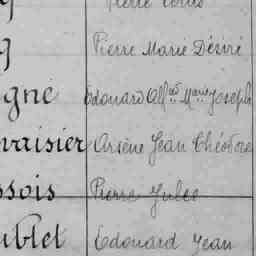 Pierre
Pierre Marie Désiré
gné Edouard Alf.ed Marie Joseph
vaisier Arsène Jean Théodore
ssois Pierre Jules
ublet Edouard Jean